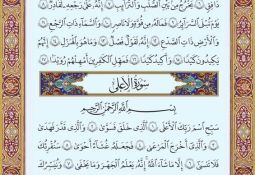 دَافِقٍ ۝٦ يَخْرُجُ مِنۢ بَيْنِ ٱلصُّلْبِ وَٱلتَّرَآئِبِ ۝٧ إِنَّهُۥ عَلَىٰ رَجْعِهِۦ لَقَادِرٌ ۝٨
يَوْمَ تُبْلَى ٱلسَّرَآئِرُ ۝٩ فَمَا لَهُۥ مِن قُوَّةٍ وَلَا نَاصِرٍ ۝١٠ وَٱلسَّمَآءِ ذَاتِ ٱلرَّجْعِ ۝١١
وَٱلْأَرْضِ ذَاتِ ٱلصَّدْعِ ۝١٢ إِنَّهُۥ لَقَوْلٌ فَصْلٌ ۝١٣ وَمَا هُوَ بِٱلْهَزْلِ ۝١٤ إِنَّهُمْ
يَكِيدُونَ كَيْدًا ۝١٥ وَأَكِيدُ كَيْدًا ۝١٦ فَمَهِّلِ ٱلْكَٰفِرِينَ أَمْهِلْهُمْ رُوَيْدًۢا ۝١٧
سُورَةُ الأَعْلَىٰ
بِسْمِ ٱللَّهِ ٱلرَّحْمَٰنِ ٱلرَّحِيمِ
سَبِّحِ ٱسْمَ رَبِّكَ ٱلْأَعْلَى ۝١ ٱلَّذِى خَلَقَ فَسَوَّىٰ ۝٢ وَٱلَّذِى قَدَّرَ فَهَدَىٰ
۝٣ وَٱلَّذِىٓ أَخْرَجَ ٱلْمَرْعَىٰ ۝٤ فَجَعَلَهُۥ غُثَآءً أَحْوَىٰ ۝٥ سَنُقْرِئُكَ
فَلَا تَنسَىٰٓ ۝٦ إِلَّا مَا شَآءَ ٱللَّهُ إِنَّهُۥ يَعْلَمُ ٱلْجَهْرَ وَمَا يَخْفَىٰ ۝٧ وَنُيَسِّرُكَ